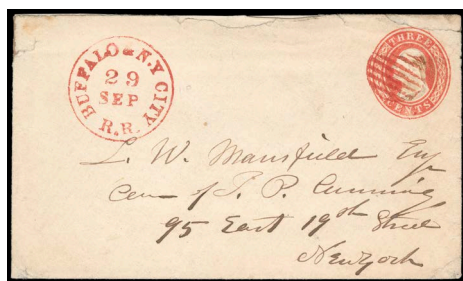 BUFFALO & N.Y CITY
29
SEP
R.R.
THREE
CENTS
L. W. Mansfield Esq
Care of T. P. Cumming
95 East 19th Street
New York